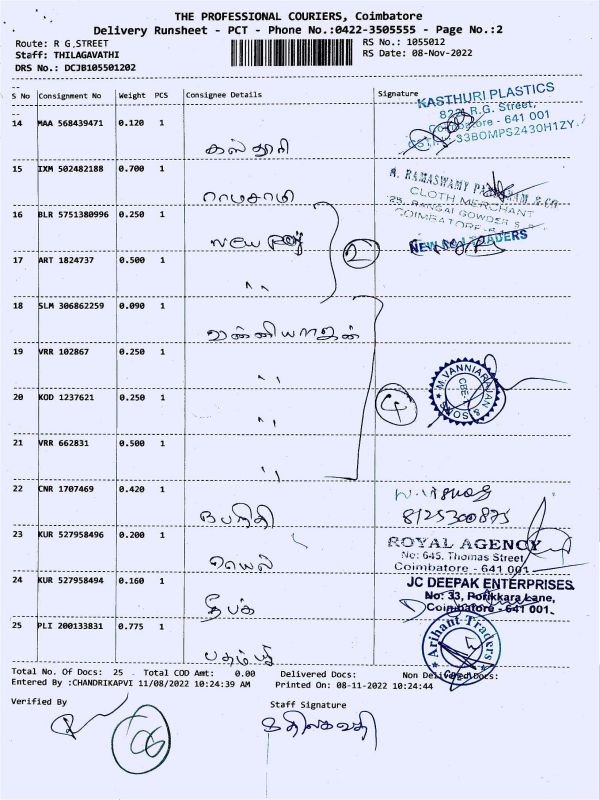 THE PROFESSIONAL COURIERS, Coimbatore
Delivery Runsheet - PCT - Phone No.:0422-3505555 - Page No.:2
Route: R G STREET
RS No.: 1055012
Staff: THILAGAVATHI
RS Date: 08-Nov-2022
DRS No.: DCJB105501202
S No Consignment No Weight PCS Consignee Details Signature
KASTHURI PLASTICS
R.G. Street,
Coimbatore - 641 001
33BOMPS2430H1ZY
14 MAA 568439471 0.120 1
கஸ்தூரி
15 IXM 502482188 0.700 1
ராமசாமி
CLOTH MERCHANT
16 BLR 5751380996 0.250 1
New
2
TRADERS
17 ART 1824737 0.500 1
"
18 SLM 306862259 0.090 1
வன்னியராஜன்
19 VRR 102867 0.250 1
"
M. VANNIARAJAN & SONS
CBE-1
20 KOD 1237621 0.250 1
"
4
21 VRR 662831 0.500 1
"
22 CNR 1707469 0.420 1
8125300875
23 KUR 527958496 0.200 1
ROYAL AGENCY
No: 645, Thomas Street
Coimbatore - 641 001
24 KUR 527958494 0.160 1
தீபக்
JC DEEPAK ENTERPRISES
No: 33, Porikkara Lane,
Coimbatore - 641 001.
25 PLI 200133831 0.775 1
Arihant Traders
Total No. Of Docs: 25 Total COD Amt: 0.00 Delivered Docs: Non Delivered Docs:
Entered By :CHANDRIKAPVI 11/08/2022 10:24:39 AM Printed On: 08-11-2022 10:24:44
Verified By
Staff Signature
திலகவதி